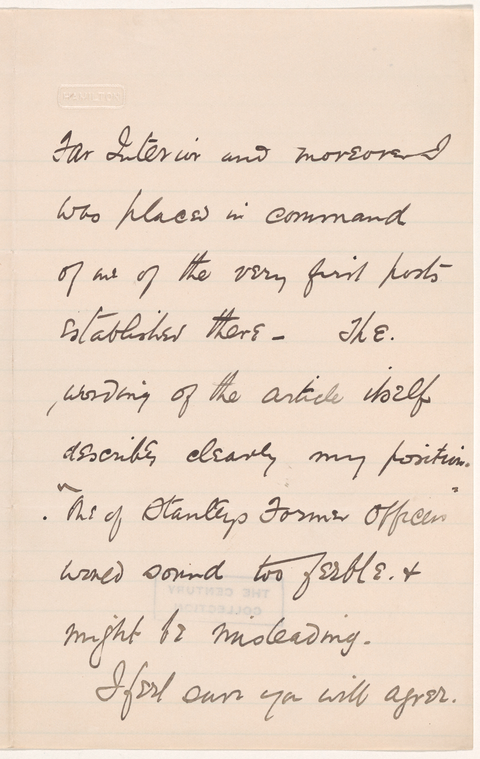 HAMILTON
Far Interior and moreover I
was placed in command
of one of the very first posts
established there — The.
wording of the article itself
describes clearly my position.
"One of Stanleys Former Officers"
would sound too feeble. &
might be misleading.
I feel sure you will agree.
THE CENTURY
COLLECTION